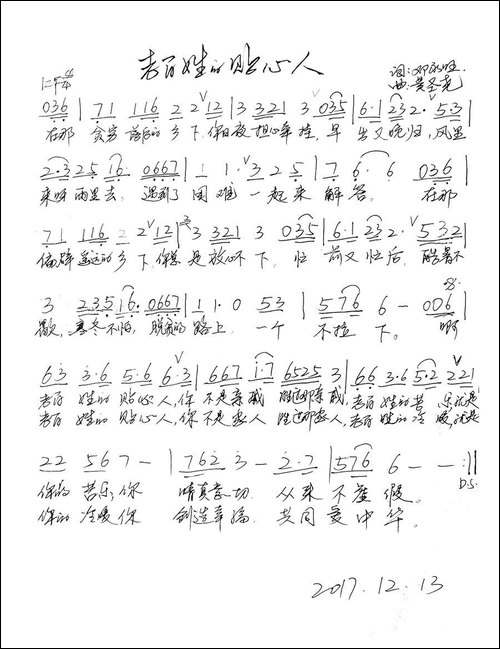 老百姓的贴心人
1=F 4/4
词:邓
曲:黄圣尧
036 | 71 116 2 2 V12 | 3 3321 3 035 | 6·1 232 2· V5·3 |
在那 贫穷 落后的 乡下,你日夜担心牵挂,早 出又晚归,风里
2·325 16· 0667 | 1 1· V3 2 5 | 7 6· 6 036 |
来呀 雨里去, 遇到了 困难 一起来 解答。 在那
71 116 2 2 V12 | 3 3321 3 035 | 6·1 232 2· V532 |
偏僻 遥远的 乡下,你总 是放心不下,忙 前又忙后, 酷暑不
3 2351 6·0667 | 1 1·0 53 | 576 6 - 006 |
歇, 寒冬不怕, 脱贫的 路上, 一个 不拉下。 啊
63 3·6 5·6 6·3 V | 667 1·7 6525 3 | 66 3·6 5·2 V 221 |
老百 姓的 贴心人,你 不是亲戚 胜过那亲戚,老百 姓的 苦 乐就是
老百 姓的 贴心人,你 不是家人 胜过那家人,老百 姓的 冷 暖就是
22 567 - | 762 3 - 2·7 | 576 6 - - :||
你的 苦乐,你 情真意切 从来 不虚假。
D.S.
你的 冷暖,你 创造幸福, 共同爱中华。
2017.12.13